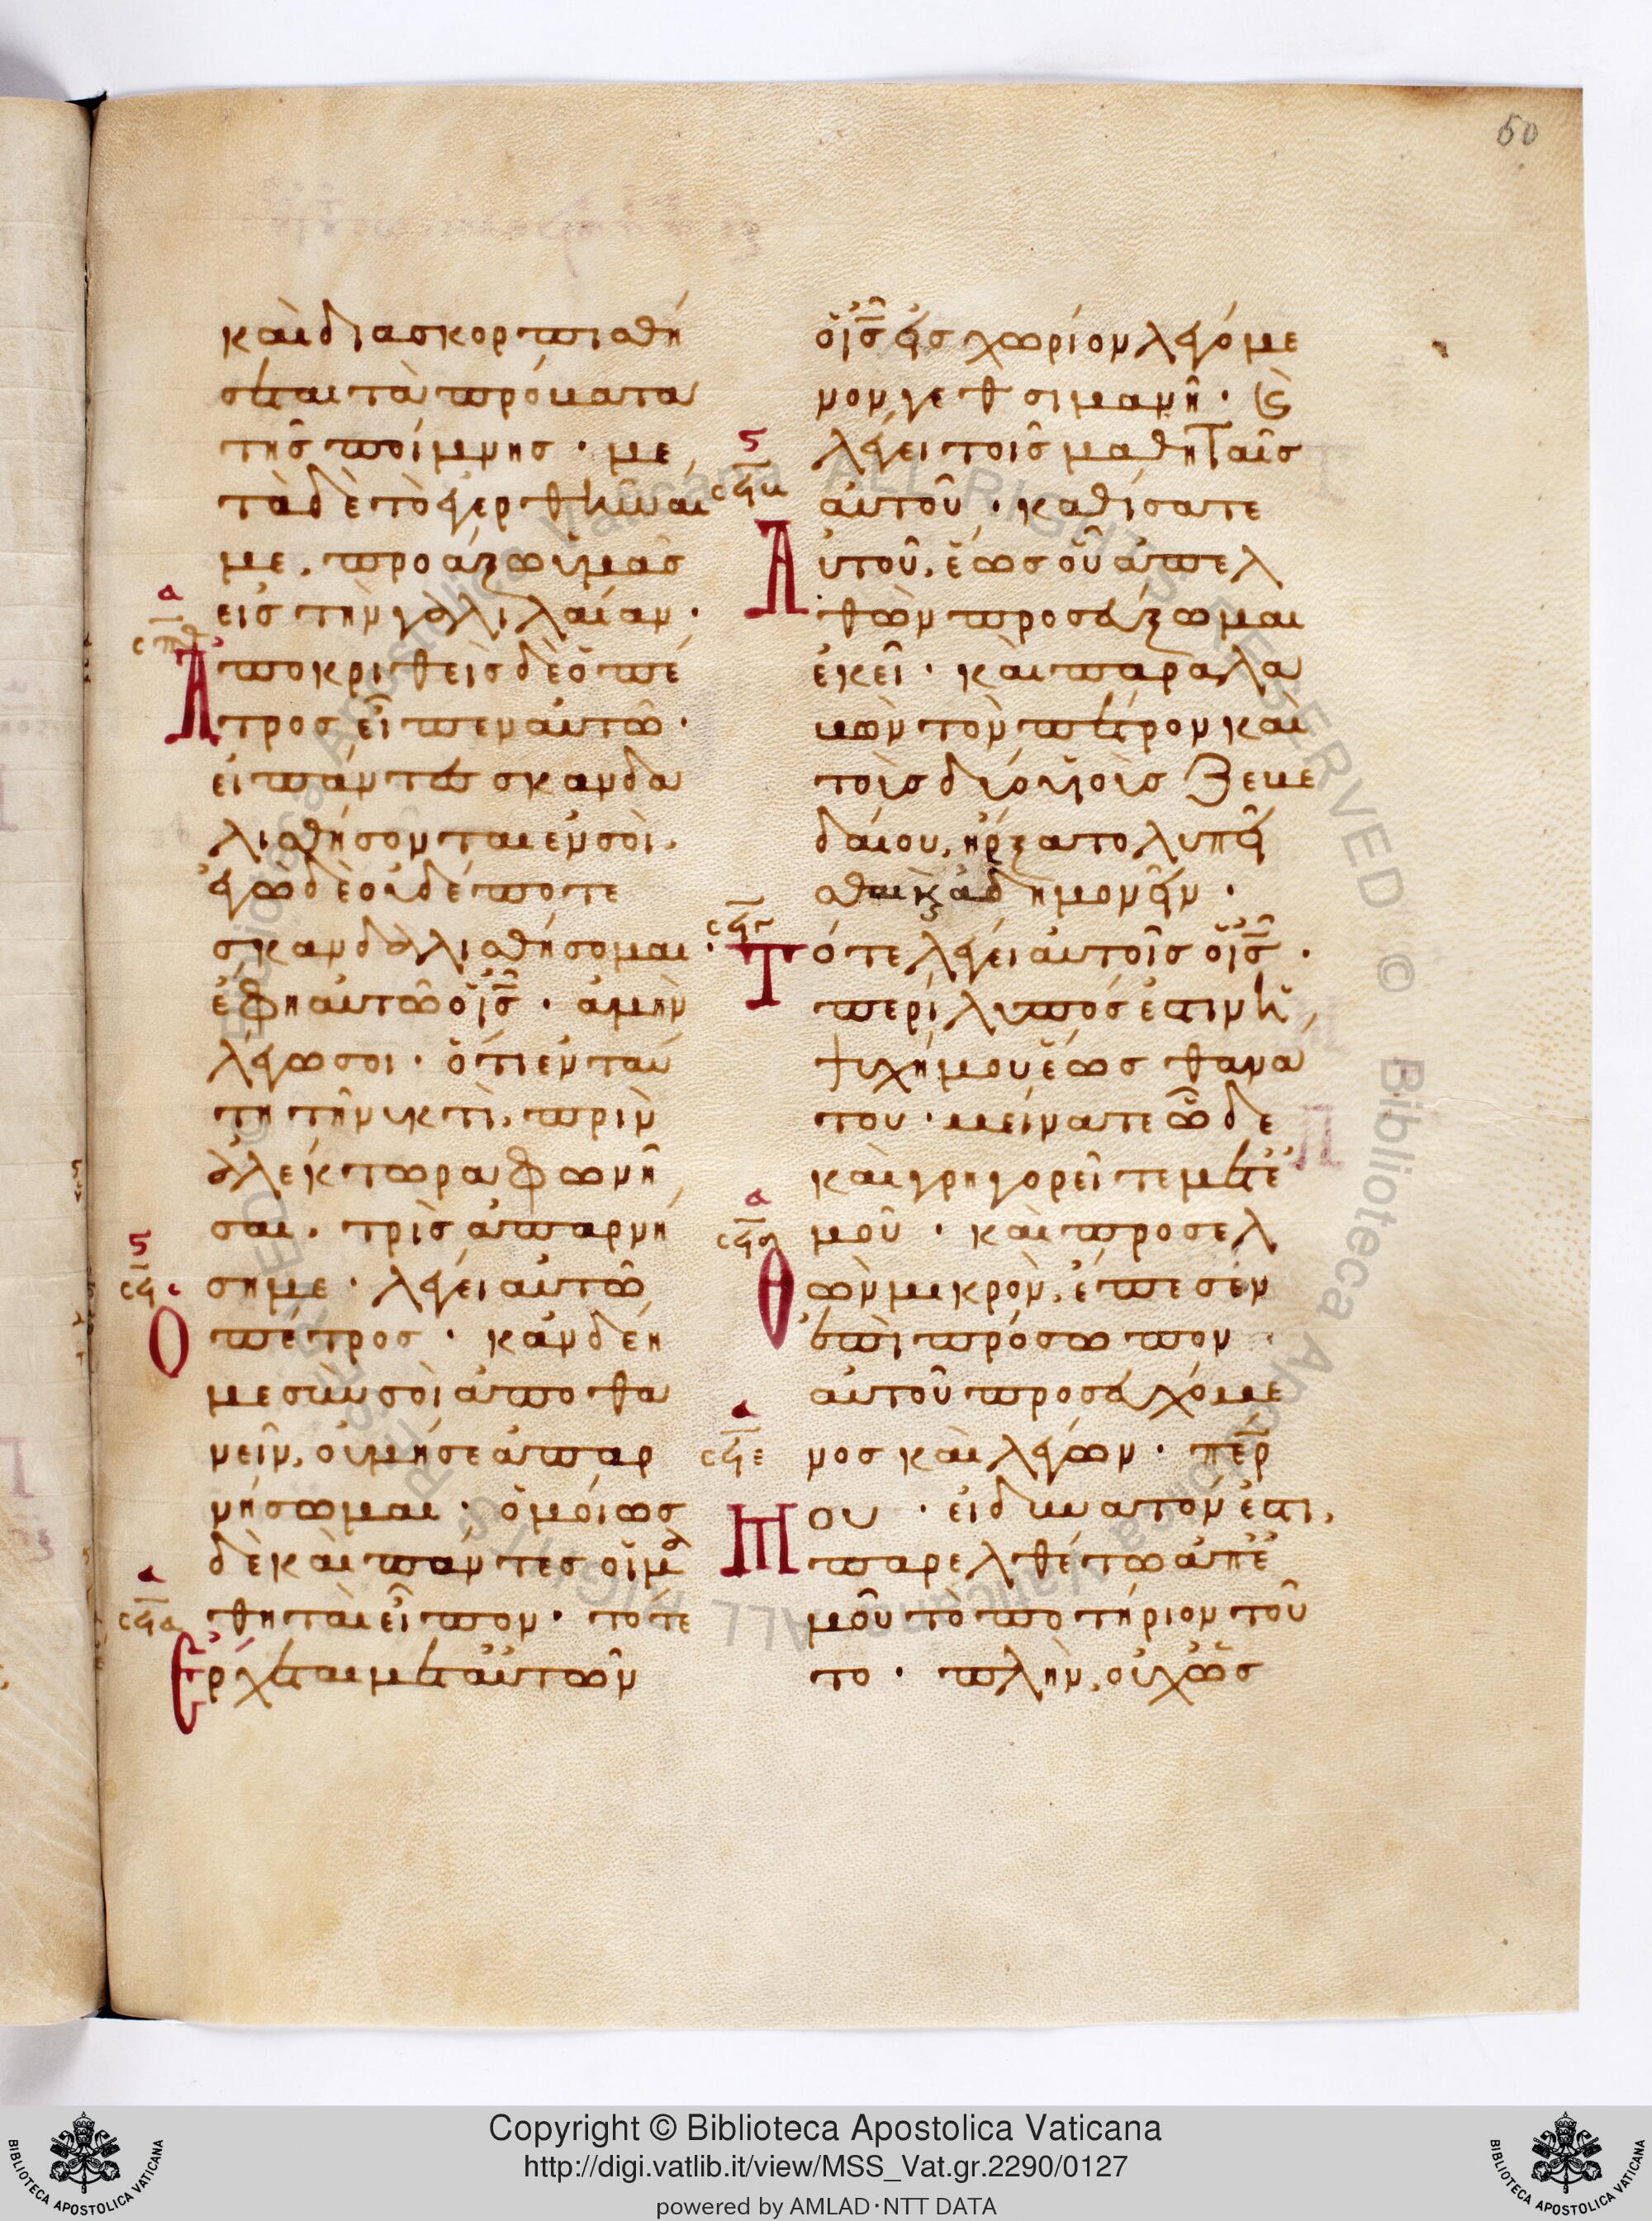 50
καὶ διασκορπισθή
σεται τὰ πρόβατα
τῆς ποίμνης · με
τὰ δὲ τὸ ἐγερθῆναί
με, προάξω ὑμᾶς
εἰς τὴν γαλιλαίαν ·
α
σπθ
Ἀποκριθεὶς δὲ ὁ πέ
τρος εἶπεν αὐτῶ ·
εἰ πάντες σκανδα
λισθήσονται ἐν σοὶ,
ἐγὼ δὲ οὐδέποτε
σκανδαλισθήσομαι ·
ἔφη αὐτῶ ὁ ἰς · ἀμὴν
λέγω σοι · ὅτι ἐν ταύ
τη τῆ νυκτὶ, πρὶν
ἀλέκτορα φωνῆ
σαι, τρὶς ἀπαρνή
ϛ
σϟ
ση με · λέγει αὐτῶ
Ὁ πέτρος · κἂν δέη
με σὺν σοὶ ἀποθα
νεῖν, οὐ μή σε ἀπαρ
νήσωμαι · ὁμοίως
δὲ καὶ πάντες οἱ μα
α
σϟα
θηταὶ εἶπον · τότε
Ἔρχεται μετ αὐτῶν
ὁ ἰς εἰς χωρίον λεγόμε
νον γεθσιμανῆ · καὶ
ϛ
σϟβ
λέγει τοῖς μαθηταῖς
αὐτοῦ · καθίσατε
Αὐτοῦ, ἕως οὗ ἀπελ
θὼν προσεύξωμαι
ἐκεῖ · καὶ παραλα
βὼν τὸν πέτρον καὶ
τοὺς δύο υἱοὺς Ζεβε
δαίου, ἤρξατο λυπεῖ
σθαι κ ἀδημονεῖν ·
σϟγ
Τότε λέγει αὐτοῖς ὁ ἰς ·
περίλυπός ἐστιν ἡ
ψυχή μου ἕως θανά
του · μείνατε ὧδε
καὶ γρηγορεῖτε μετ ἐ
α
σϟδ
μοῦ · καὶ προσελ
Θὼν μικρὸν, ἔπεσεν
ἐπὶ πρόσωπον
αὐτοῦ προσευχόμε
α
σϟε
νος καὶ λέγων · περ
Μου · εἰ δυνατόν ἐστι,
παρελθέτω ἀπ ἐ
μοῦ τὸ ποτήριον τοῦ
το · πλὴν, οὐχ ὡς
Copyright © Biblioteca Apostolica Vaticana
http://digi.vatlib.it/view/MSS_Vat.gr.2290/0127
powered by AMLAD·NTT DATA